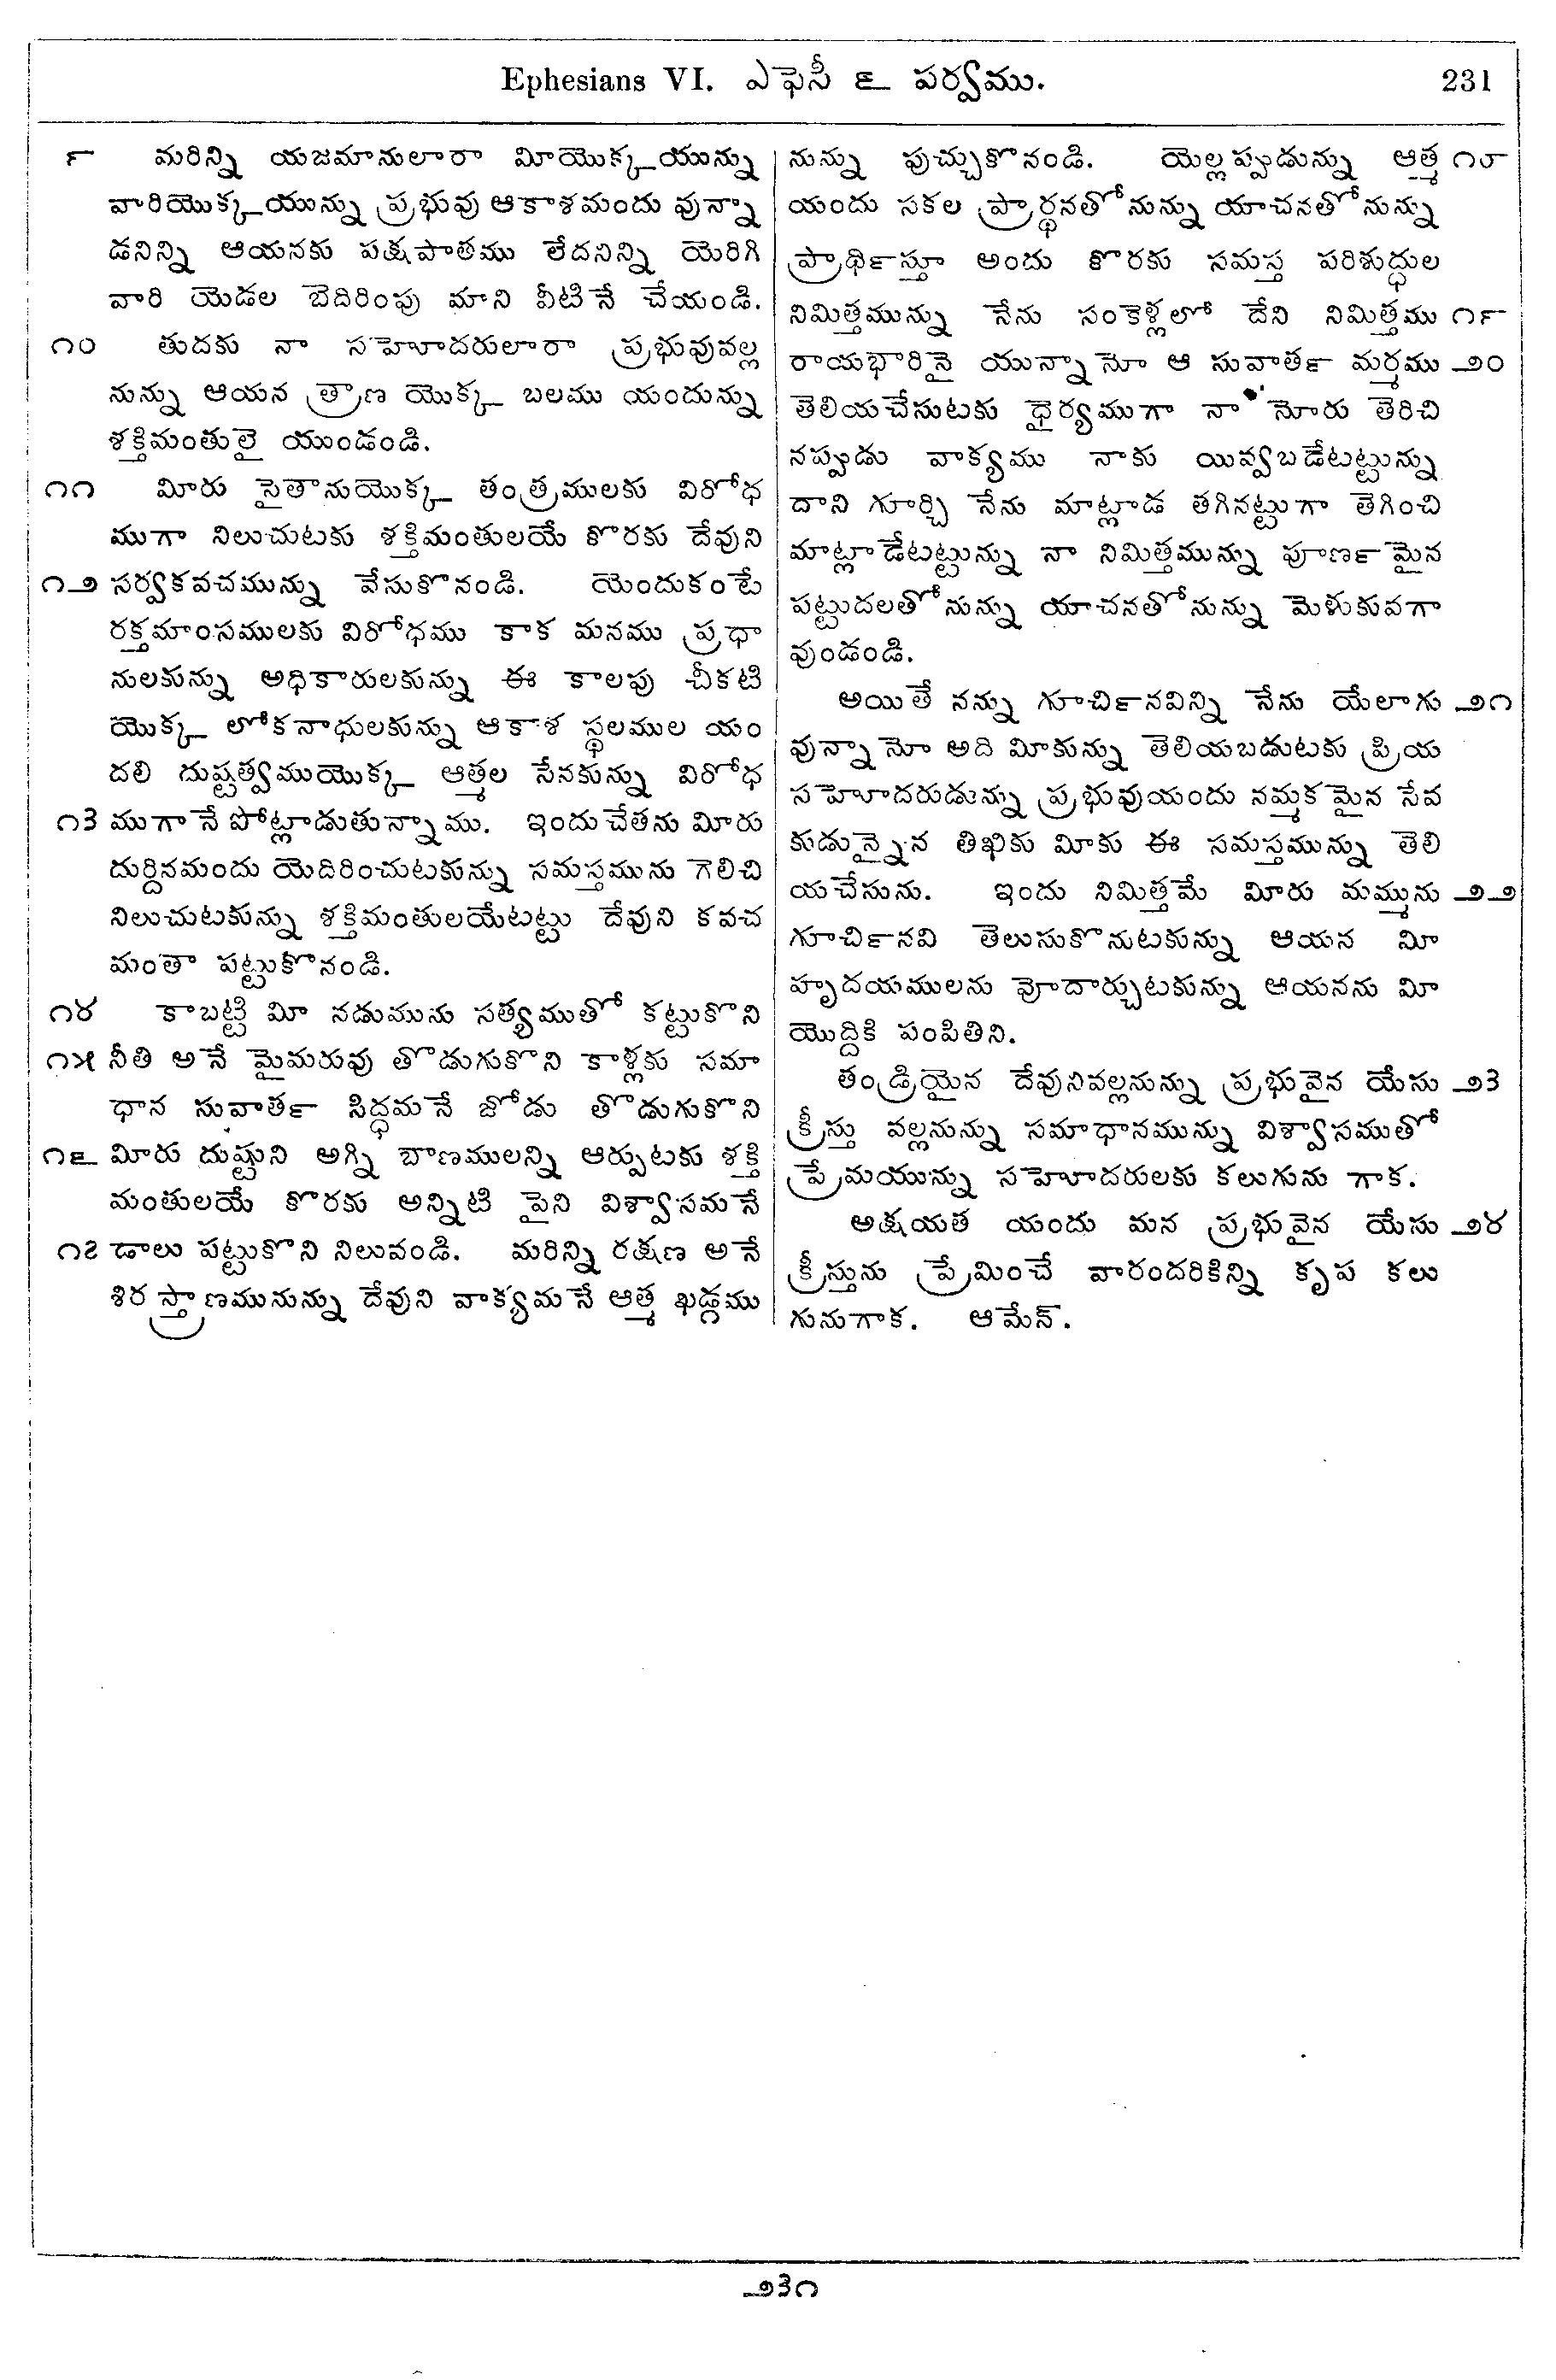 Ephesians VI. ఎఫెసీ ౬ పర్వము. 231
౯ మరిన్ని యజమానులారా మీయొక్కయున్ను
వారియొక్కయున్ను ప్రభువు ఆకాశమందు వున్నా
డనిన్ని ఆయనకు పక్షపాతము లేదనిన్ని యెరిగి
వారి యెడల బెదిరింపు మాని వీటినే చేయండి.
౧౦ తుదకు నా సహోదరులారా ప్రభువువల్ల
నున్ను ఆయన త్రాణ యొక్క బలము యందున్ను
శక్తిమంతులై యుండండి.
౧౧ మీరు సైతానుయొక్క తంత్రములకు విరోధ
ముగా నిలుచుటకు శక్తిమంతులయే కొరకు దేవుని
౧౨ సర్వకవచమున్ను వేసుకొనండి. యెందుకంటే
రక్తమాంసములకు విరోధము కాక మనము ప్రధా
నులకున్ను అధికారులకున్ను ఈ కాలపు చీకటి
యొక్క లోకనాధులకున్ను ఆకాశ స్థలముల యం
దలి దుష్టత్వముయొక్క ఆత్మల సేనకున్ను విరోధ
౧౩ ముగానే పోట్లాడుతున్నాము. ఇందుచేతను మీరు
దుర్దినమందు యెదిరించుటకున్ను సమస్తమును గెలిచి
నిలుచుటకున్ను శక్తిమంతులయేటట్టు దేవుని కవచ
మంతా పట్టుకొనండి.
౧౪ కాబట్టి మీ నడుమును సత్యముతో కట్టుకొని
౧౫ నీతి అనే మైమరువు తొడుగుకొని కాళ్లకు సమా
ధాన సువార్త సిద్ధమనే జోడు తొడుగుకొని
౧౬ మీరు దుష్టుని అగ్ని బాణములన్ని ఆర్పుటకు శక్తి
మంతులయే కొరకు అన్నిటి పైని విశ్వాసమనే
౧౭ డాలు పట్టుకొని నిలువండి. మరిన్ని రక్షణ అనే
శిరస్త్రాణమునున్ను దేవుని వాక్యమనే ఆత్మ ఖడ్గము
నున్ను పుచ్చుకొనండి. యెల్లప్పుడున్ను ఆత్మ ౧౮
యందు సకల ప్రార్థనతోనున్ను యాచనతోనున్ను
ప్రార్థిస్తూ అందు కొరకు సమస్త పరిశుద్ధుల
నిమిత్తమున్ను నేను సంకెళ్లలో దేని నిమిత్తము ౧౯
రాయభారినై యున్నానో ఆ సువార్త మర్మము ౨౦
తెలియచేసుటకు ధైర్యముగా నా నోరు తెరిచి
నప్పుడు వాక్యము నాకు యివ్వబడేటట్టున్ను
దాని గూర్చి నేను మాట్లాడ తగినట్టుగా తెగించి
మాట్లాడేటట్టున్ను నా నిమిత్తమున్ను పూర్ణమైన
పట్టుదలతోనున్ను యాచనతోనున్ను మెళుకువగా
వుండండి.
అయితే నన్ను గూర్చినవిన్ని నేను యేలాగు ౨౧
వున్నానో అది మీకున్ను తెలియబడుటకు ప్రియ
సహోదరుడున్ను ప్రభువుయందు నమ్మకమైన సేవ
కుడున్నైన తిఖికు మీకు ఈ సమస్తమున్ను తెలి
యచేసును. ఇందు నిమిత్తమే మీరు మమ్మును ౨౨
గూర్చినవి తెలుసుకొనుటకున్ను ఆయన మీ
హృదయములను వోదార్చుటకున్ను ఆయనను మీ
యొద్దికి పంపితిని.
తండ్రియైన దేవునివల్లనున్ను ప్రభువైన యేసు ౨౩
క్రీస్తు వల్లనున్ను సమాధానమున్ను విశ్వాసముతో
ప్రేమయున్ను సహోదరులకు కలుగును గాక.
అక్షయత యందు మన ప్రభువైన యేసు ౨౪
క్రీస్తును ప్రేమించే వారందరికిన్ని కృప కలు
గునుగాక. ఆమేన్.
౨౩౧